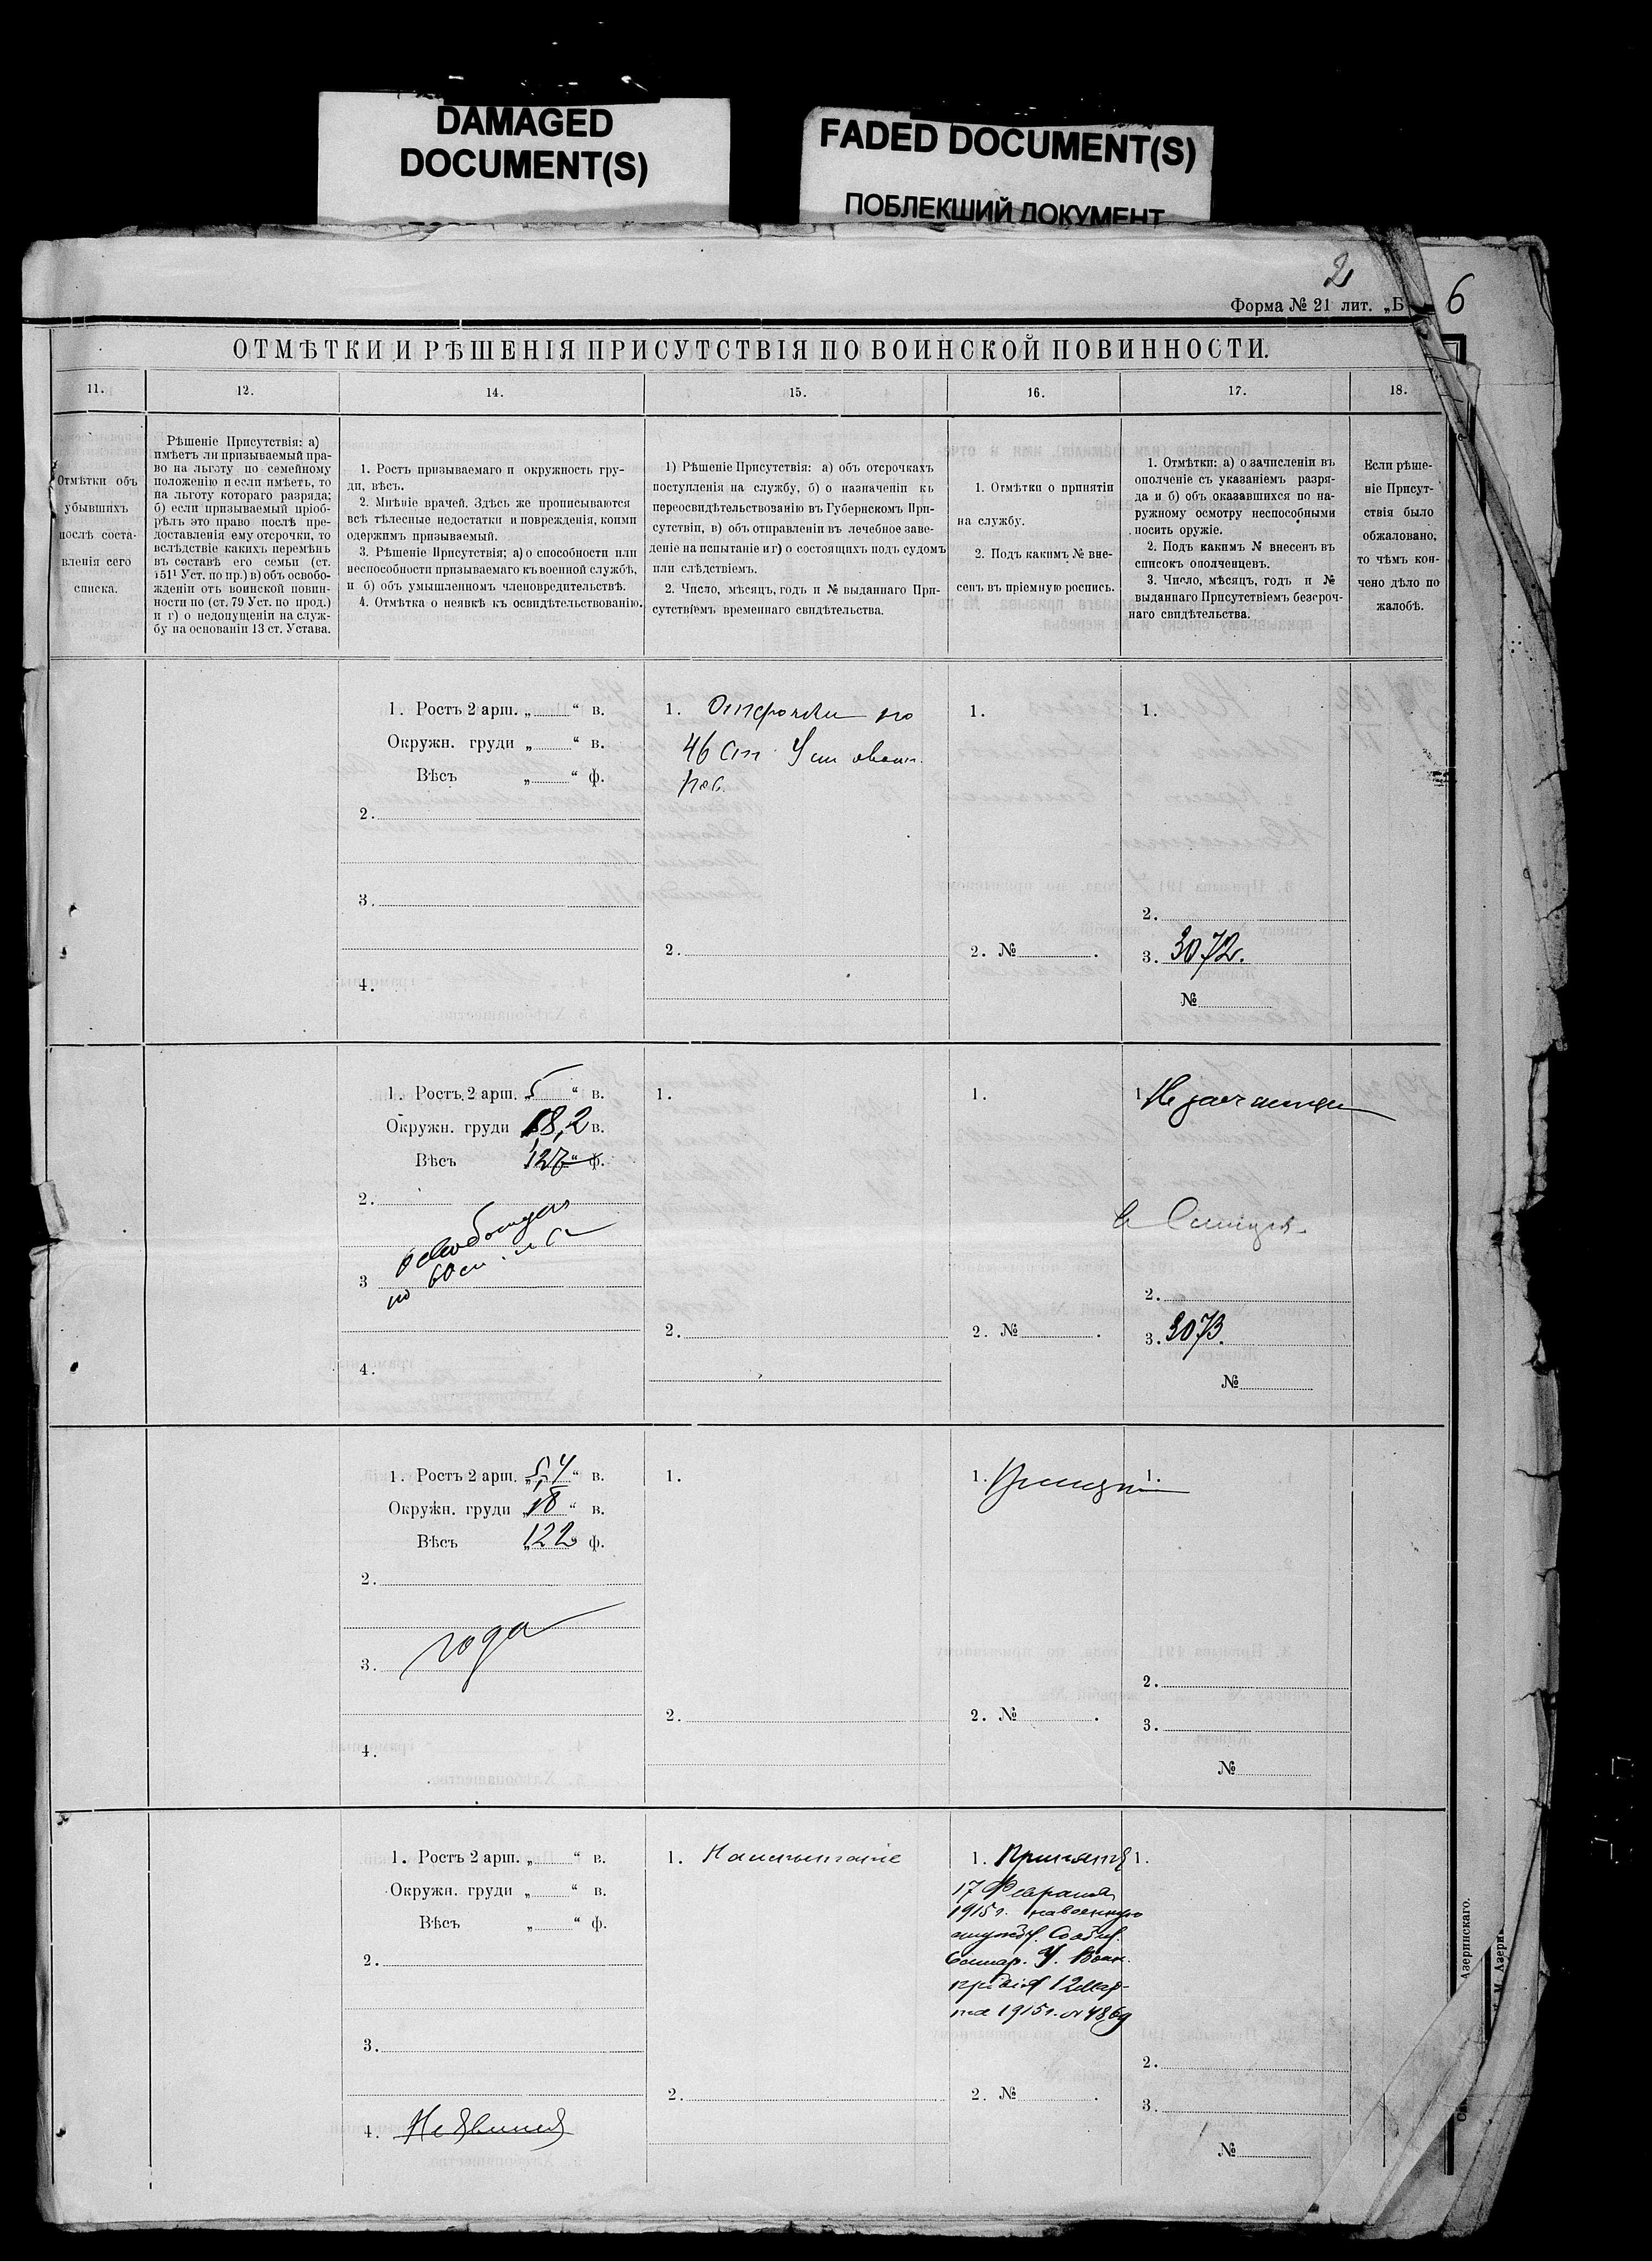 DAMAGED
DOCUMENT(S)
FADED DOCUMENT(S)
ПОБЛЕКШИЙ ДОКУМЕНТ
2
Форма № 21 лит. „Б
6
ОТМѢТКИ И РѢШЕНІЯ ПРИСУТСТВІЯ ПО ВОИНСКОЙ ПОВИННОСТИ.
11.
12.
14.
15.
16.
17.
18.
Отмѣтки объ
убывшихъ
послѣ соста-
вленія сего
списка.
Рѣшеніе Присутствія: а)
имѣетъ ли призываемый пра-
во на льготу по семейному
положенію и если имѣетъ, то
на льготу котораго разряда;
б) если призываемый пріоб-
рѣлъ это право послѣ пре-
доставленія ему отсрочки, то
вслѣдствіе какихъ перемѣнъ
въ составѣ его семьи (ст.
151¹ Уст. по пр.) в) объ освобо-
жденіи отъ воинской повин-
ности по (ст. 79 Уст. по прод.)
и г) о недопущеніи на служ-
бу на основаніи 13 ст. Устава.
1. Ростъ призываемаго и окружность гру-
ди, вѣсъ.
2. Мнѣніе врачей. Здѣсь же прописываются
всѣ тѣлесные недостатки и поврежденія, коими
одержимъ призываемый.
3. Рѣшеніе Присутствія; а) о способности или
неспособности призываемаго къ военной службѣ,
и б) объ умышленномъ членовредительствѣ.
4. Отмѣтка о неявкѣ къ освидѣтельствованію.
1) Рѣшеніе Присутствія: а) объ отсрочкахъ
поступленія на службу, б) о назначеніи къ
переосвидѣтельствованію въ Губернскомъ При-
сутствіи, в) объ отправленіи въ лечебное заве-
деніе на испытаніе и г) о состоящихъ подъ судомъ
или слѣдствіемъ.
2. Число, мѣсяцъ, годъ и № выданнаго При-
сутствіемъ временнаго свидѣтельства.
1. Отмѣтки о принятіи
на службу.
2. Подъ какимъ № вне-
сенъ въ пріемную роспись.
1. Отмѣтки: а) о зачисленіи въ
ополченіе съ указаніемъ разря-
да и б) объ оказавшихся по на-
ружному осмотру неспособными
носить оружіе.
2. Подъ какимъ № внесенъ въ
списокъ ополченцевъ.
3. Число, мѣсяцъ, годъ и №
выданнаго Присутствіемъ безсроч-
наго свидѣтельства.
Если рѣше-
ніе Присут-
ствія было
обжаловано,
то чѣмъ кон-
чено дѣло по
жалобѣ.
1. Ростъ 2 арш. „ “ в.
Окружн. груди „ “ в.
Вѣсъ „ “ ф.
2.
3.
4.
1. Отсрочки по
46 ст. Уст
пов.
2.
1.
2. №
1.
2.
3. 3072.
№
1. Ростъ 2 арш. „5 “ в.
Окружн. груди 18,2 в.
Вѣсъ 127 “ ф.
2.
по 60 ст.
3
4.
1.
2.
1.
2. №
1. Не
2.
3. 3073.
№
1. Ростъ 2 арш. „5,4 “ в.
Окружн. груди „18 “ в.
Вѣсъ „122 ф.
2.
3. года
4.
1.
2.
1.
2. №
1.
2.
3.
№
1. Ростъ 2 арш. „ “ в.
Окружн. груди „ “ в.
Вѣсъ „ “ ф.
2.
3.
4. Не явился
1. На испытаніе
2.
1. Принятъ
17 Февраля
1915 г. на военную
службу. Сообщ.
У. Воин.
12 Мар-
та 1915 г. № 4869
2. №
1.
2.
3.
№
Азеринскаго.